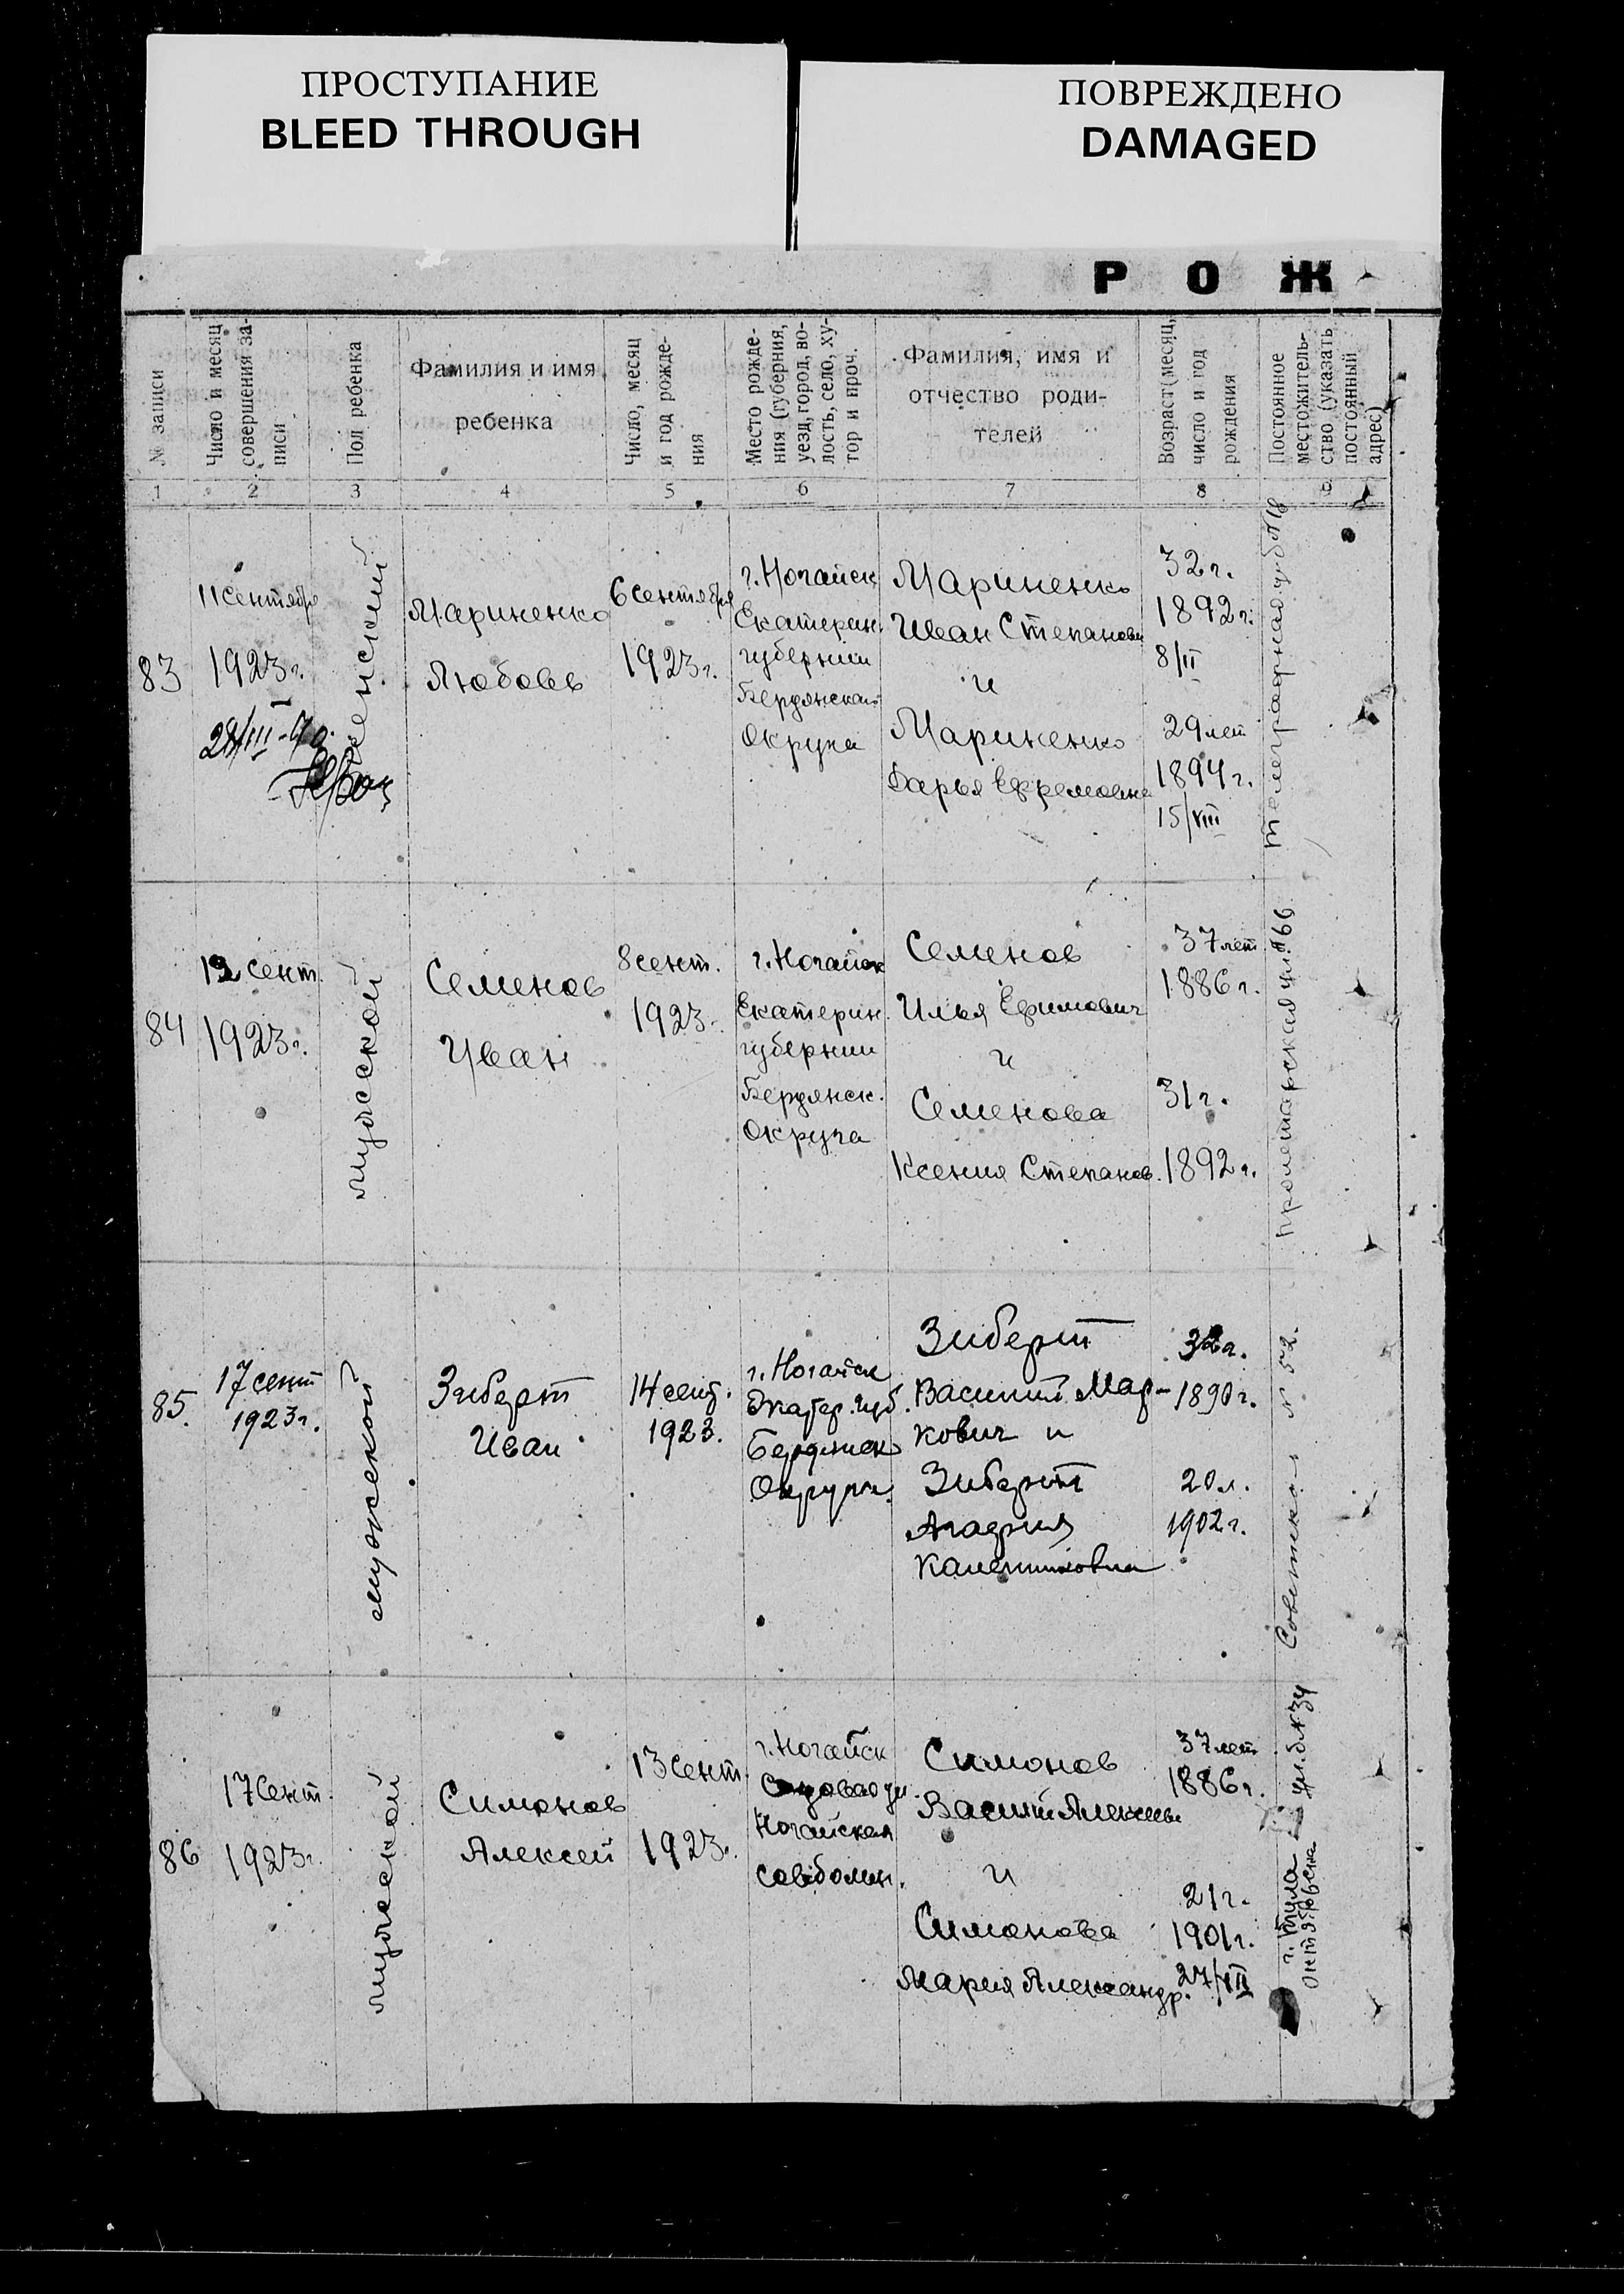 ПРОСТУПАНИЕ
BLEED THROUGH
ПОВРЕЖДЕНО
DAMAGED
Р О Ж
№ записи
Число и месяц
совершения за-
писи
Пол ребенка
Фамилия и имя
ребенка
Число, месяц
и год рожде-
ния
Место рожде-
ния (губерния,
уезд, город, во-
лость, село, ху-
тор и проч.
Фамилия, имя и
отчество роди-
телей
Возраст (месяц,
число и год
рождения
Постоянное
местожитель-
ство (указать
постоянный
адрес)
1 2 3 4 5 6 7 8 9
83
11 сентября
1923 г.
28/III-
женский
Мариненко
Любовь
6 сентября
1923 г.
г. Ногайск
Екатерин.
губернии
Бердянскаго
Округа
Мариненко
Иван Степанови
и
Мариненко
Дарья Ефремовна
32 г.
1892 г.
8/II
29 лет
1894 г.
15/VIII
84
12 сент.
1923 г.
мужеской
Семенов
Иван
8 сент.
1923 г.
г. Ногайск
Екатерин.
губернии
Бердянск.
Округа
Семенов
Илья Ефимович
и
Семенова
Ксения Степанов.
37 лет
1886 г.
31 г.
1892 г.
Пролетарская ул. № 66
85.
17 сент
1923 г.
мужеской
Зиберт
Иван
14 сент.
1923.
г. Ногайск
Екатер. губ.
Бердянск
Округа.
Зиберт
Василий Мар-
кович и
Зиберт
Агафия
32 г.
1890 г.
20 л.
1902 г.
Советская № 52.
86
17 Сент.
1923 г.
мужеской
Симонов
Алексей
13 Сент.
1923 г.
г. Ногайск
Садовая ул.
Ногайская
Симонов
Василий Алексеев
и
Симонова
Мария Александр.
37 лет
1886 г.
21 г.
1901 г.
г. Тула